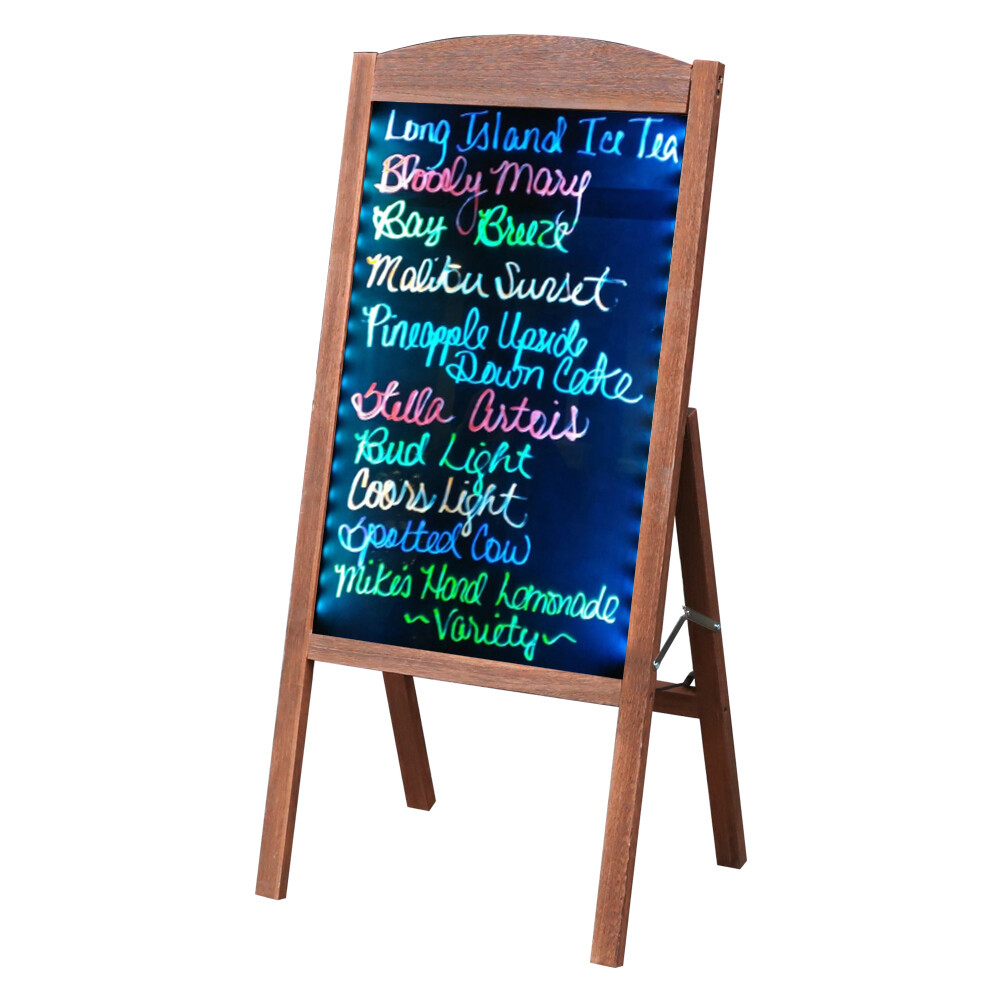 Long Island Ice Tea
Bloody Mary
Bay Breeze
Malibu Sunset
Pineapple Upside
Down Cake
Stella Artois
Bud Light
Coors Light
Spotted Cow
Mike's Hard Lemonade
~Variety~